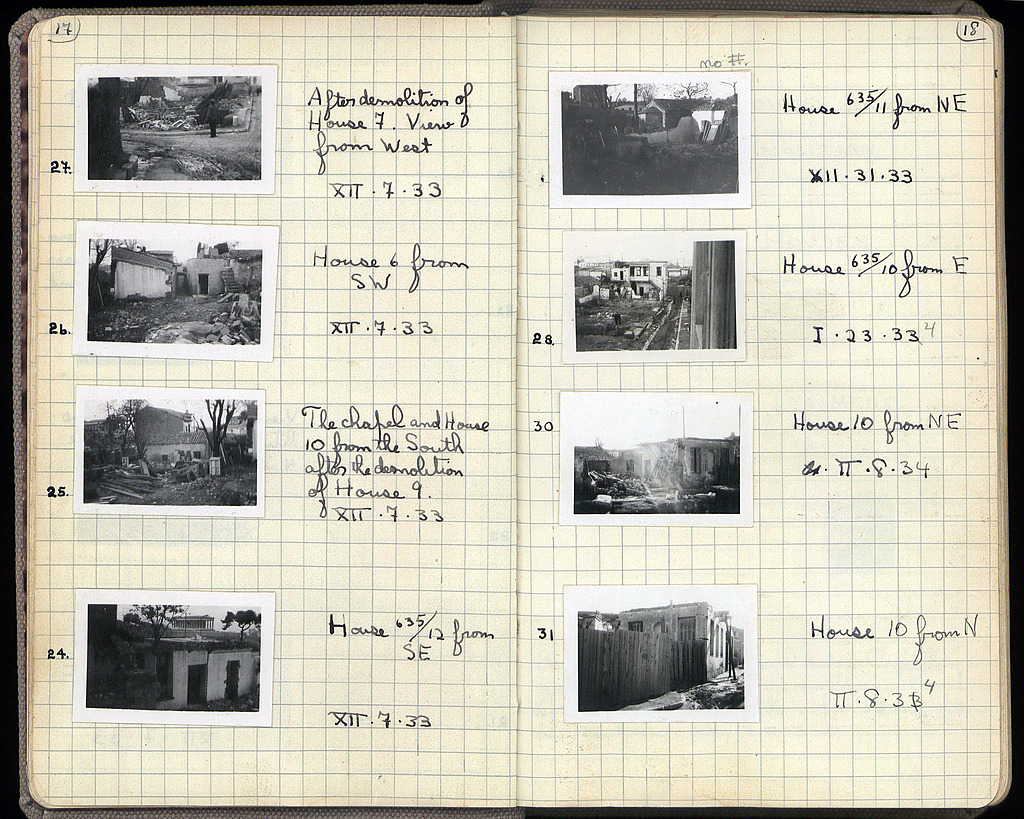 17
27.
After demolition of
House 7. View
from West
XII.7.33
26.
House 6 from
SW
XII.7.33
25.
The chapel and House
10 from the South
after the demolition
of House 9.
XII.7.33
24.
House 635/12 from
SE
XII.7.33
18
no #.
House 635/11 from NE
XII.31.33
28.
House 635/10 from E
I.23.33 4
30
House 10 from NE
II.8.34
31
House 10 from N
II.8.33 4